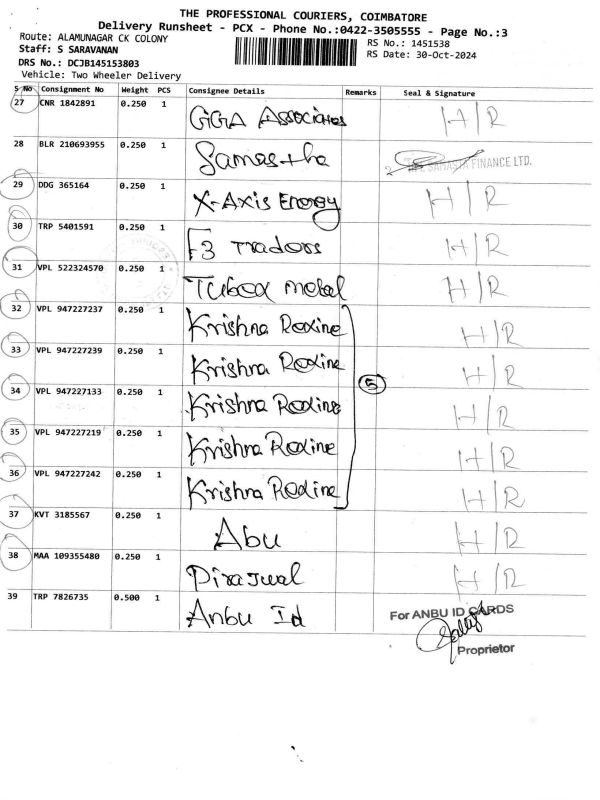 THE PROFESSIONAL COURIERS, COIMBATORE
Delivery Runsheet - PCX - Phone No.:0422-3505555 - Page No.:3
Route: ALAMUNAGAR CK COLONY
RS No.: 1451538
Staff: S SARAVANAN
RS Date: 30-Oct-2024
DRS No.: DCJB145153803
Vehicle: Two Wheeler Delivery
S No Consignment No Weight PCS Consignee Details Remarks Seal & Signature
27 CNR 1842891 0.250 1 GGA Associates H/R
28 BLR 210693955 0.250 1 Samastha SAMASTA FINANCE LTD.
29 DDG 365164 0.250 1 X-Axis Energy H/R
30 TRP 5401591 0.250 1 F3 Traders H/R
31 VPL 522324570 0.250 1 Tubex metal H/R
32 VPL 947227237 0.250 1 Krishna Roxine H/R
33 VPL 947227239 0.250 1 Krishna Roxine H/R
34 VPL 947227133 0.250 1 Krishna Roxine 5 H/R
35 VPL 947227219 0.250 1 Krishna Roxine H/R
36 VPL 947227242 0.250 1 Krishna Roxine H/R
37 KVT 3185567 0.250 1 Abu H/R
38 MAA 109355480 0.250 1 H/R
39 TRP 7826735 0.500 1 Anbu Id
For ANBU ID CARDS
Proprietor